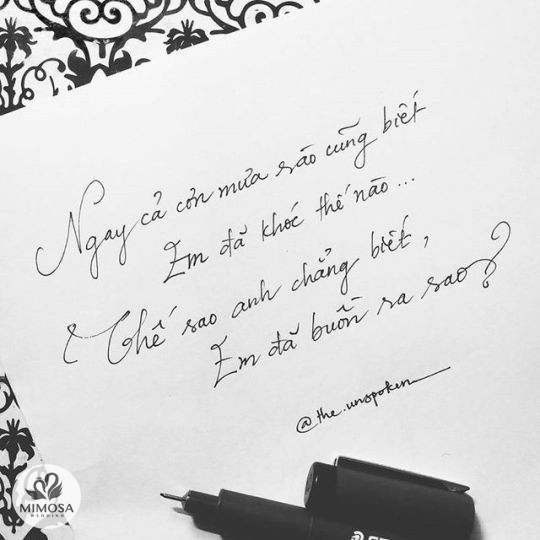 Ngay cả cơn mưa rào cũng biết
Em đã khóc thế nào...
Thế sao anh chẳng biết,
Em đã buồn ra sao?
@the.unspoken
MIMOSA
WEDDING